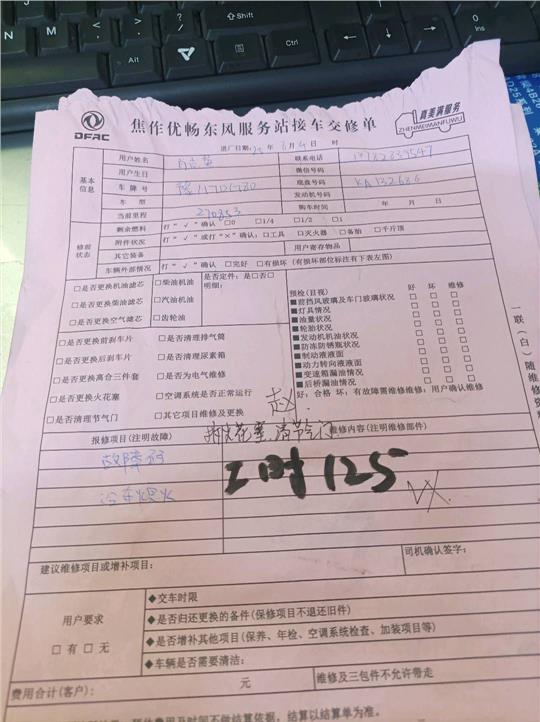 Shift
Alt
Ctrl
0
Ins
DFAC
焦作优畅东风服务站接车交修单
真美满服务
ZHENMEIMANFUWU
进厂日期: 年 月 日 时
基本信息
用户姓名
联系电话
用户生日
微信号码
车牌号
底盘号码
车型
发动机号码
当前里程
270853
购车时间
年 月 日
修前状态
剩余燃料
打“√”确认 □0 □1/4 □1/2 □1
附件状况
打“√”或打“×”确认:□工具 □灭火器 □备胎 □千斤顶
其它装备
用户寄存物品
车辆外部情况
打“√”确认 □完好 □有损坏(有损坏部位标注有下表左图)
□是否更换机油滤芯 □柴油机油
□是否更换柴油滤芯 □汽油机油
□是否更换空气滤芯 □齿轮油
是否定件: 是□否□
明细:
□是否更换前刹车片 □是否清理排气筒
□是否更换后刹车片 □是否清理尿素箱
□是否更换离合三件套 □是否为电气维修
□是否更换火花塞 □空调系统是否正常运行
□是否清理节气门 □其它项目维修及更换
预检(目视) 好 坏 维修
■前挡风玻璃及车门玻璃状况 □ □ □
■灯具情况 □ □ □
■油量状况 □ □ □
■轮胎状况 □ □ □
■发动机机油状况 □ □ □
■防冻防锈瓶状况 □ □ □
■制动液液面 □ □ □
■动力转向液液面 □ □ □
■变速箱漏油情况 □ □ □
■后桥漏油情况 □ □ □
好:合格 坏:有故障需维修维修:用户确认维修
赵
一联(白)随维修资料
报修项目(注明故障)
维修内容(注明维修部件)
火花塞 清节气门
故障码
工时125
冷车熄火
建议维修项目或增补项目:
司机确认签字:
用户要求
□有 □无
◆交车时限
◆是否归还更换的备件(保修项目不退还旧件)
◆是否增补其他项目(保养、年检、空调系统检查、加装项目等)
◆车辆是否需要清洁:
费用合计(客户): 元
维修及三包件不允许带走
预估费用及时间不做结算依据,结算以结算单为准。